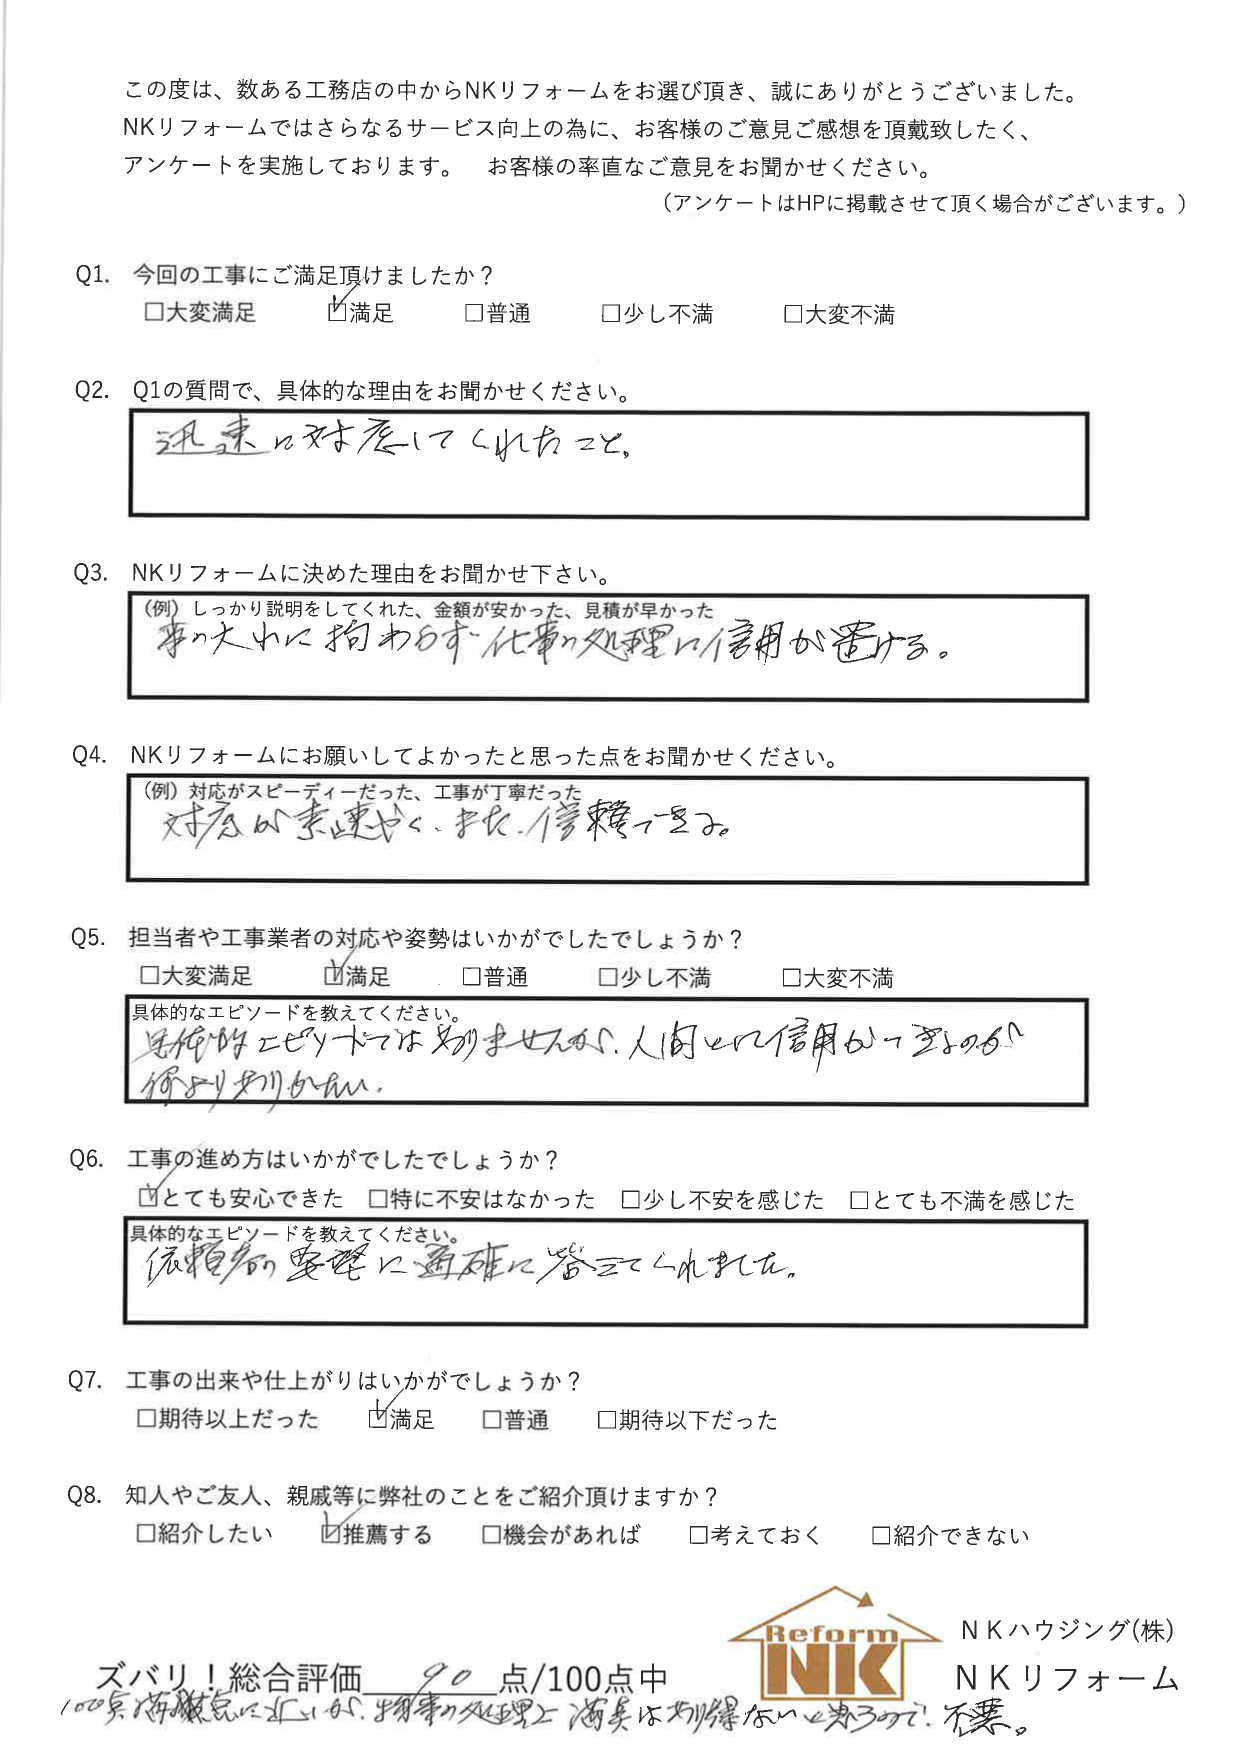 この度は、数ある工務店の中からNKリフォームをお選び頂き、誠にありがとうございました。
NKリフォームではさらなるサービス向上の為に、お客様のご意見ご感想を頂戴致したく、
アンケートを実施しております。　お客様の率直なご意見をお聞かせください。
（アンケートはHPに掲載させて頂く場合がございます。）
Q1. 今回の工事にご満足頂けましたか？
□大変満足 ☑満足 □普通 □少し不満 □大変不満
Q2. Q1の質問で、具体的な理由をお聞かせください。
迅速に対応してくれたこと。
Q3. NKリフォームに決めた理由をお聞かせ下さい。
（例）しっかり説明をしてくれた、金額が安かった、見積が早かった
事の大小に拘わらず仕事の処理に信用が置ける。
Q4. NKリフォームにお願いしてよかったと思った点をお聞かせください。
（例）対応がスピーディーだった、工事が丁寧だった
対応が素速やく、また、信頼できる。
Q5. 担当者や工事業者の対応や姿勢はいかがでしたでしょうか？
□大変満足 ☑満足 □普通 □少し不満 □大変不満
具体的なエピソードを教えてください。
具体的エピソードではありませんが、人間として信用ができるのが
何よりありがたい。
Q6. 工事の進め方はいかがでしたでしょうか？
☑とても安心できた □特に不安はなかった □少し不安を感じた □とても不満を感じた
具体的なエピソードを教えてください。
依頼者の要望に適確に答えてくれました。
Q7. 工事の出来や仕上がりはいかがでしょうか？
□期待以上だった ☑満足 □普通 □期待以下だった
Q8. 知人やご友人、親戚等に弊社のことをご紹介頂けますか？
□紹介したい ☑推薦する □機会があれば □考えておく □紹介できない
Reform
NK
ＮＫハウジング(株)
ＮＫリフォーム
ズバリ！総合評価 90 点/100点中
100点満点に近いが、物事の処理上満点はあり得ないと思うので。